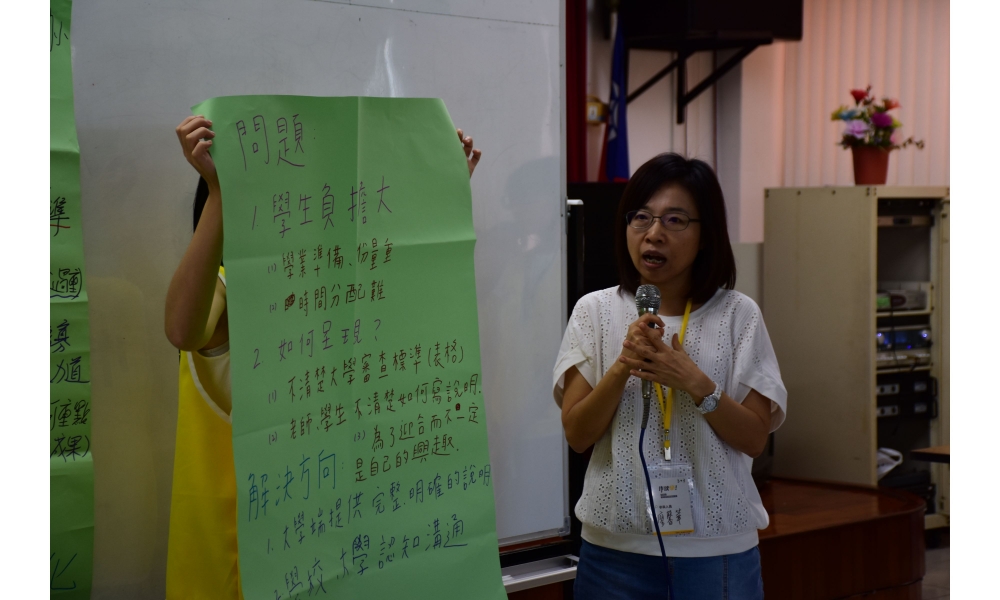 問題.
1. 學生負擔大
(1) 學業準備、份量重
(2) 時間分配難
2. 如何呈現?
(1) 不清楚大學審查標準(表格)
(2) 老師、學生不清楚如何寫說明.
(3) 為了迎合而不一定
是自己的興趣.
解決方向:
1. 大學端提供完整明確的說明
2. 學校、大學認知溝通
準
過重
力道
重點
成果)
化